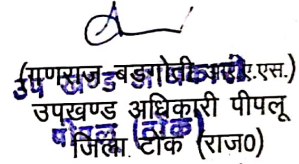 (गणराज बडगोती आर.ए.एस.)
उप खण्ड अधिकारी
उपखण्ड अधिकारी पीपलू
पीपलू (टोंक)
जिला टोंक (राज०)